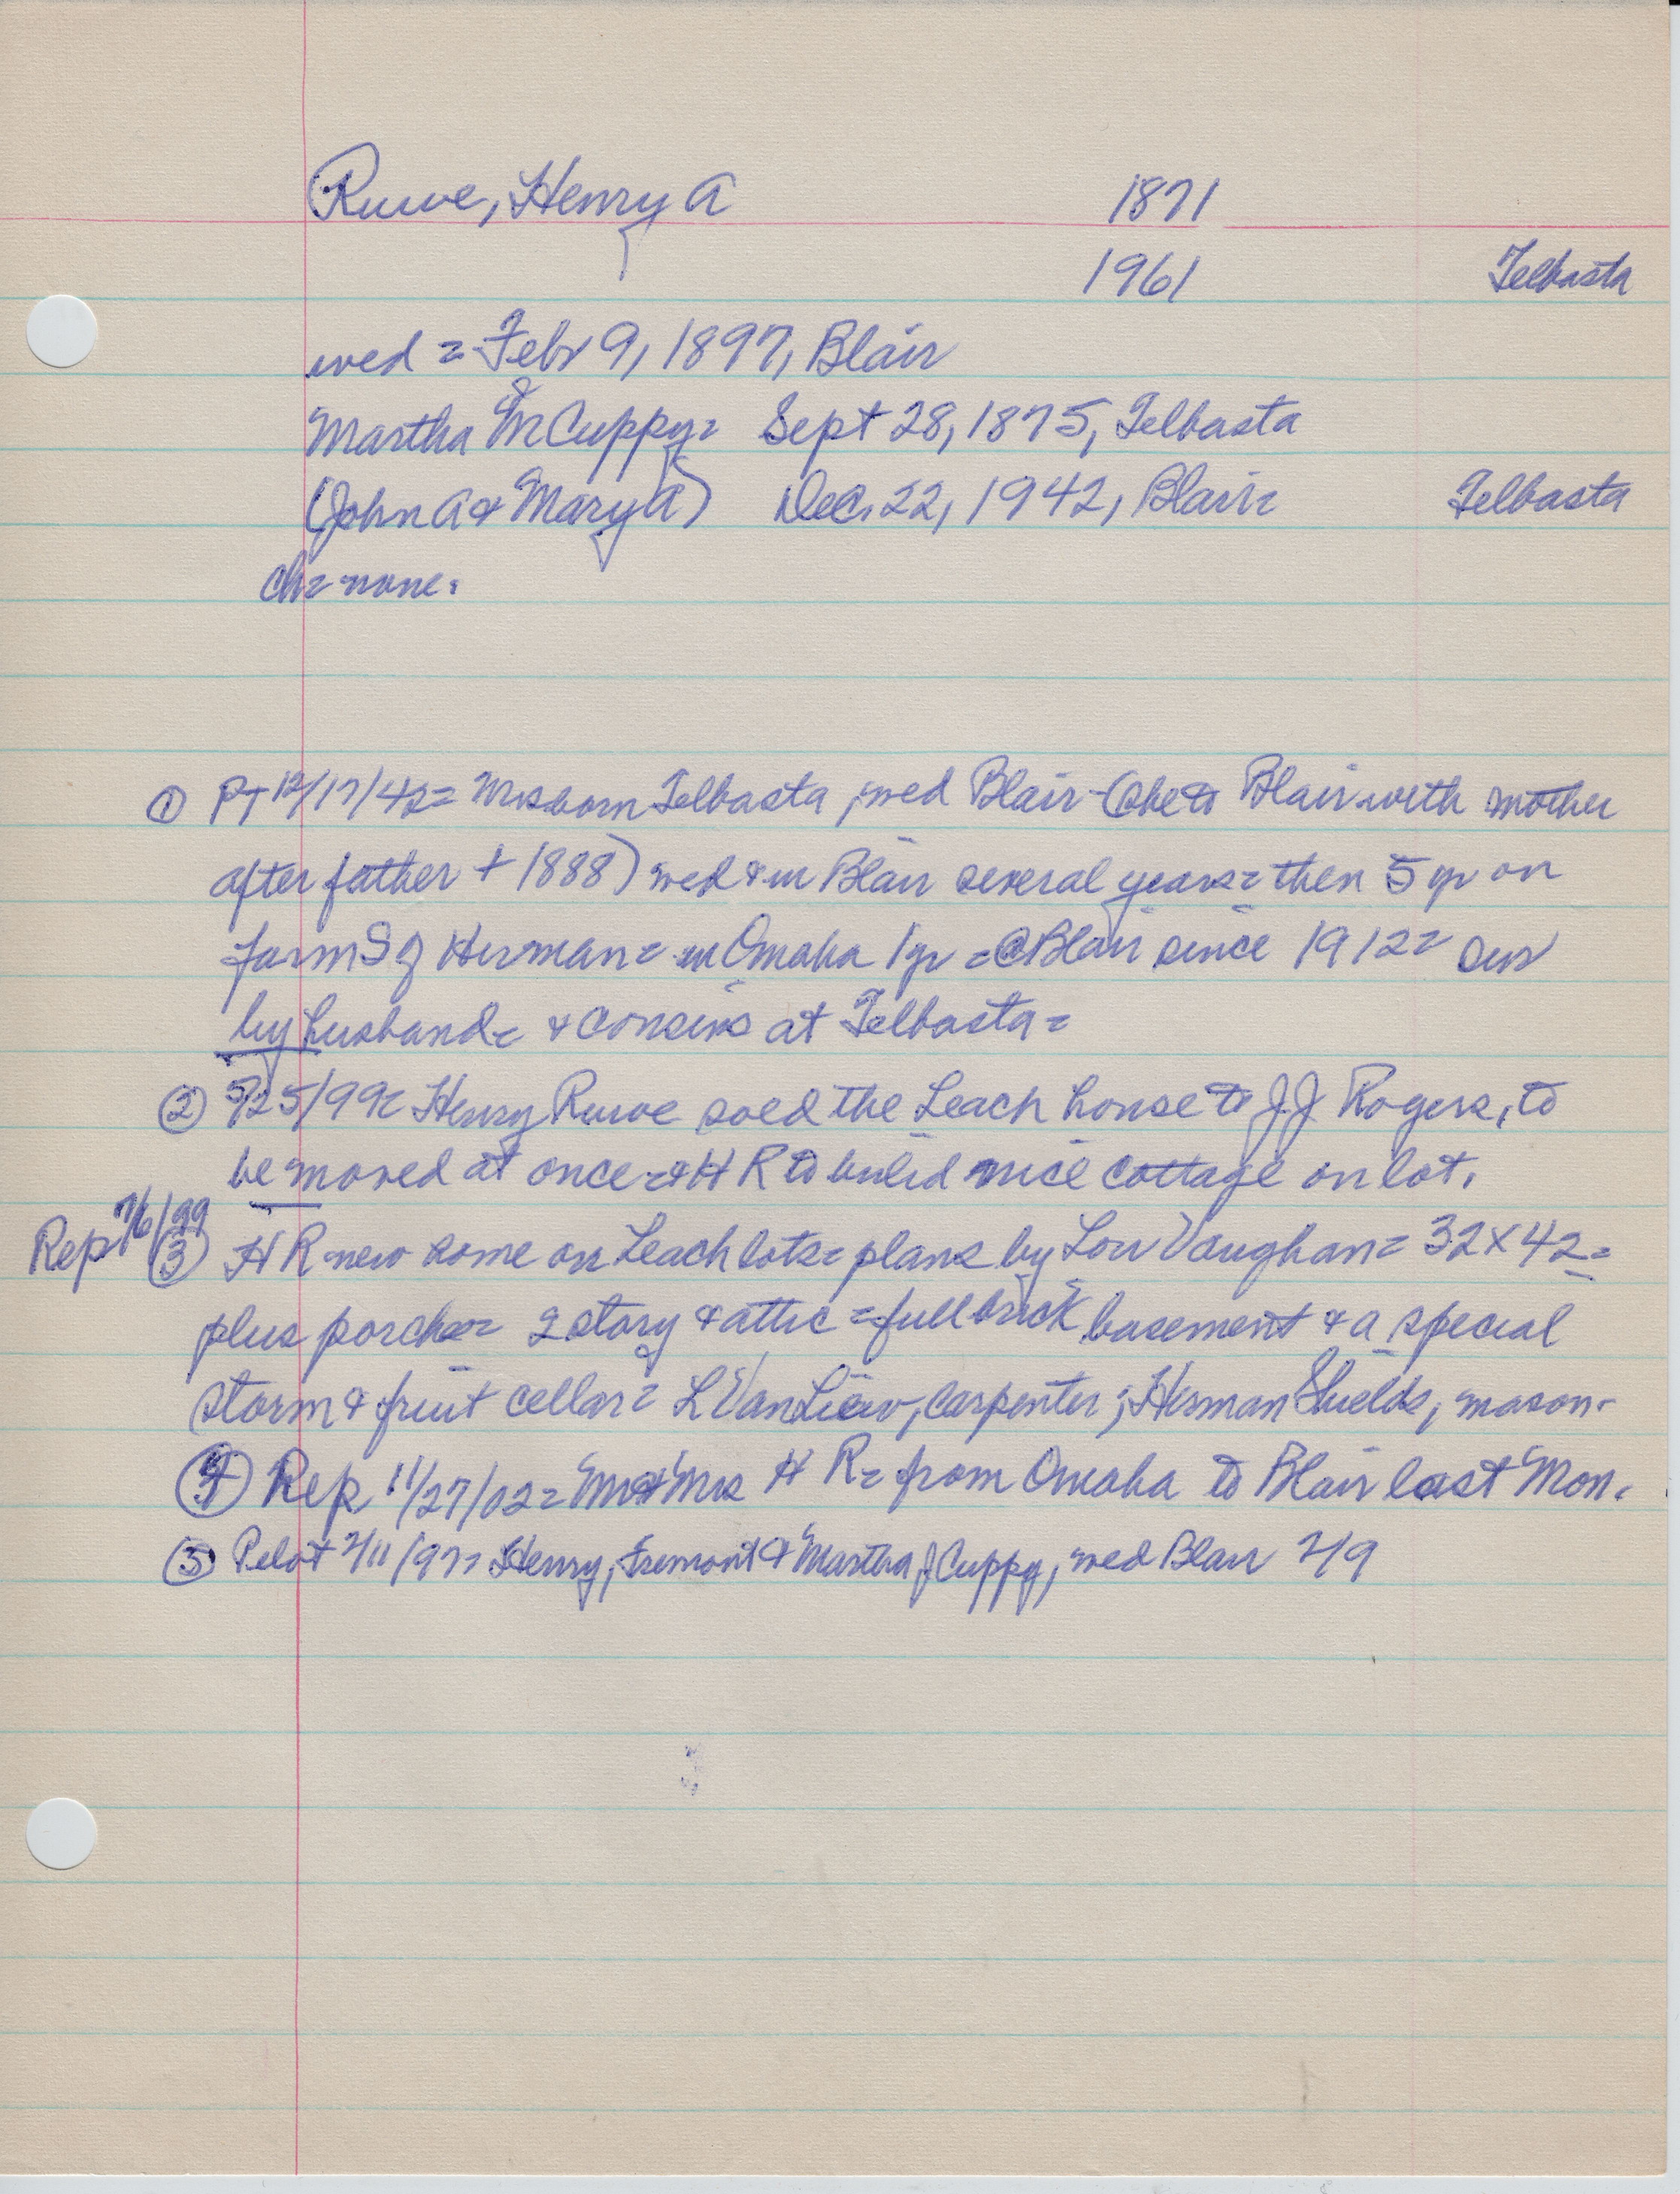 Ruwe, Henry A 1871
1961 Telbasta
wed = Feb 9, 1897, Blair
Martha M Cuppy = Sept 28, 1875, Telbasta
(John A & Mary A) Dec. 22, 1942, Blair = Telbasta
Ch = none.
① PT 12/17/42 = Mrs born Telbasta, wed Blair - (she to Blair with mother
after father + 1888) wed & in Blair several years = then 5 yr on
farm S of Herman = in Omaha 1 yr = @ Blair since 1912 = sur
by husband = & cousins at Telbasta =
② 5/25/99 = Henry Ruwe soed the Leach house to J.J Rogers, to
be moved at once = & H R to build nice cottage on lot.
Rep 7/6/99 ③ H R new home on Leach lots = plans by Lou Vaughan = 32 x 42 =
plus porch = 2 story & attic = full brick basement & a special
storm & fruit cellar = L Van Liew, Carpenter; Herman Shields, mason -
④ Rep 11/27/02 = Mr & Mrs H R = from Omaha to Blair last Mon.
⑤ Pilot 2/11/97 = Henry, Fremont & Martha J Cuppy, wed Blair 2/9